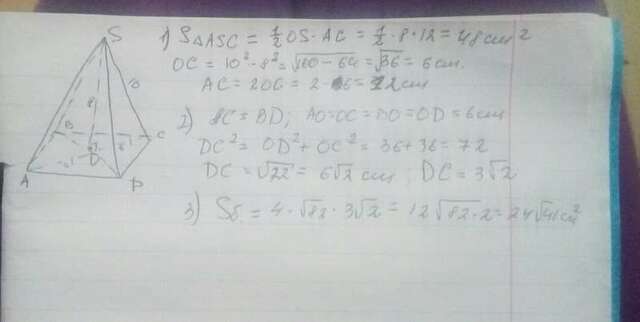 S
8
10
B
C
O
A
D
1) S△ASC = 1/2 OS · AC = 1/2 · 8 · 12 = 48 cm²
OC = 10² - 8² = √100 - 64 = √36 = 6 cm
AC = 2OC = 2 · 6 = 12 cm
2) AC = BD; AO = OC = BO = OD = 6 cm
DC² = OD² + OC² = 36 + 36 = 72
DC = √72 = 6√2 cm; DC = 3√2
3) Sб = 4 · √82 · 3√2 = 12√82 · 2 = 24√41 cm²